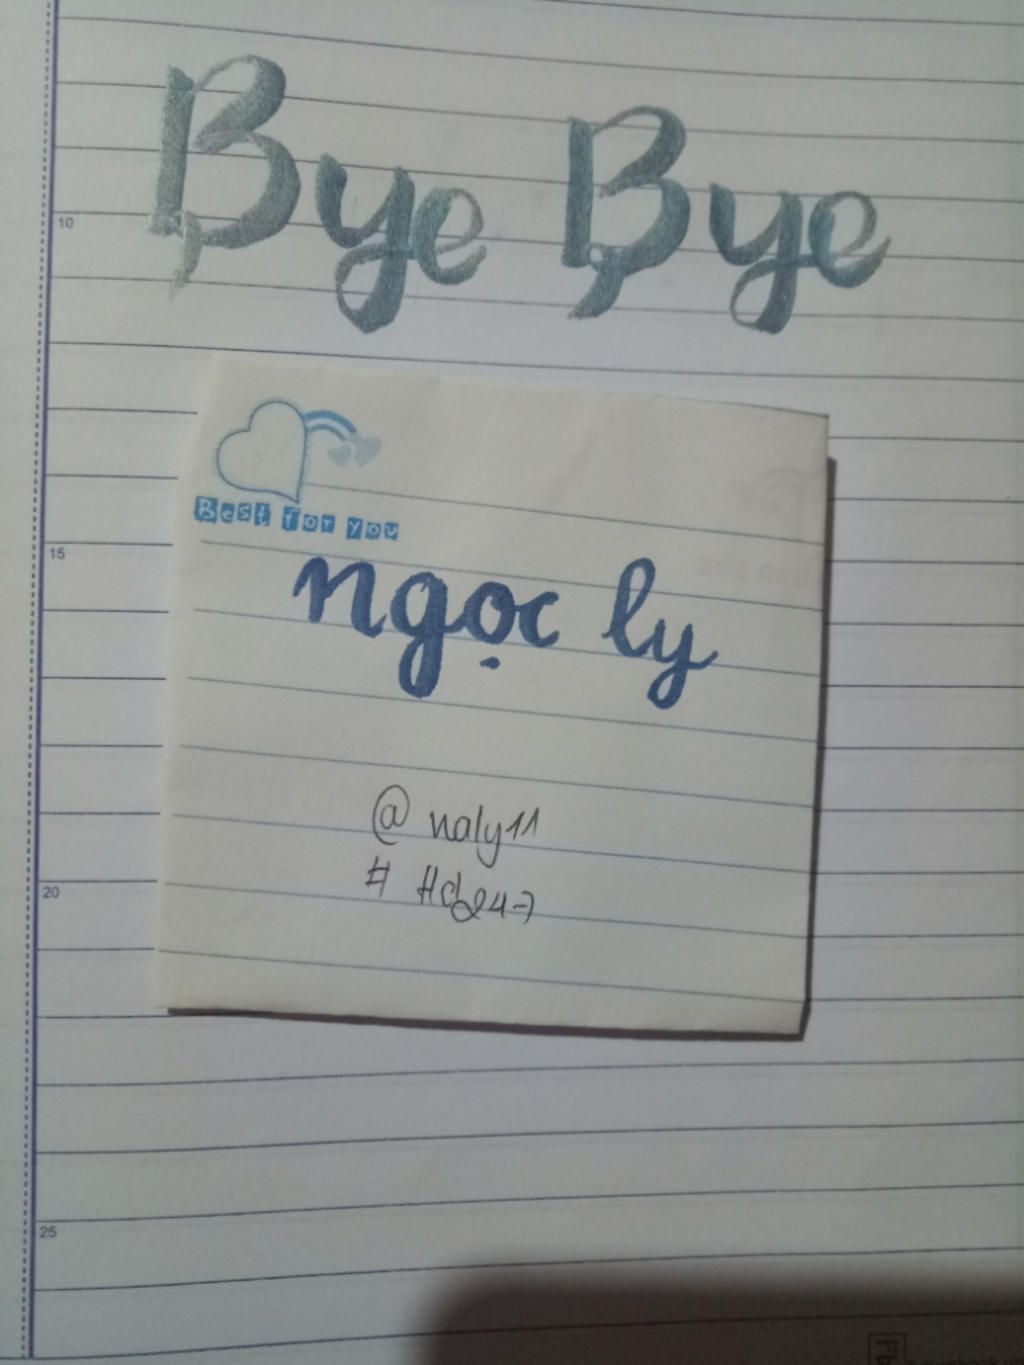 Bye Bye
10
Best for you
15
ngọc ly
@ naly11
20
25